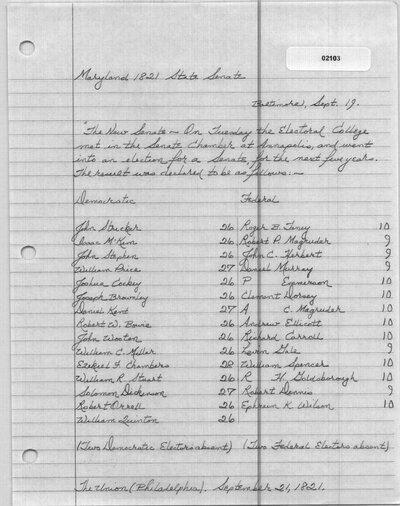 02103
Maryland 1821 State Senate
Baltimore, Sept. 19.
"The New Senate ~ On Tuesday the Electoral College
met in the Senate Chamber at Annapolis, and went
into an election for a Senate, for the next five years.
The result was declared to be as follows: ~
Democratic Federal
John Stricker 26 Roger B. Taney 10
Isaac McKim 26 Robert P. Magruder 9
John Stephen 26 John C. Herbert 9
William Price 27 Daniel Murray 9
Joshua Cockey 26 P Emmerson 10
Joseph Brownley 26 Clement Dorsey 10
Daniel Kent 27 A C. Magruder 10
Robert W. Bowie 26 Andrew Ellicott 10
John Wooton 26 Richard Carroll 10
William C. Miller 26 Levin Gale 9
Ezekiel F. Chambers 28 William Spencer 10
William R. Stuart 26 R H. Goldsborough 10
Solomon Dickinson 27 Robert Dennis 9
Robert Orrell 26 Ephraim K. Wilson 10
William Quinton 26
(Two Democratic Electors absent) (Two Federal Electors absent)
The Union (Philadelphia). September 21, 1821.